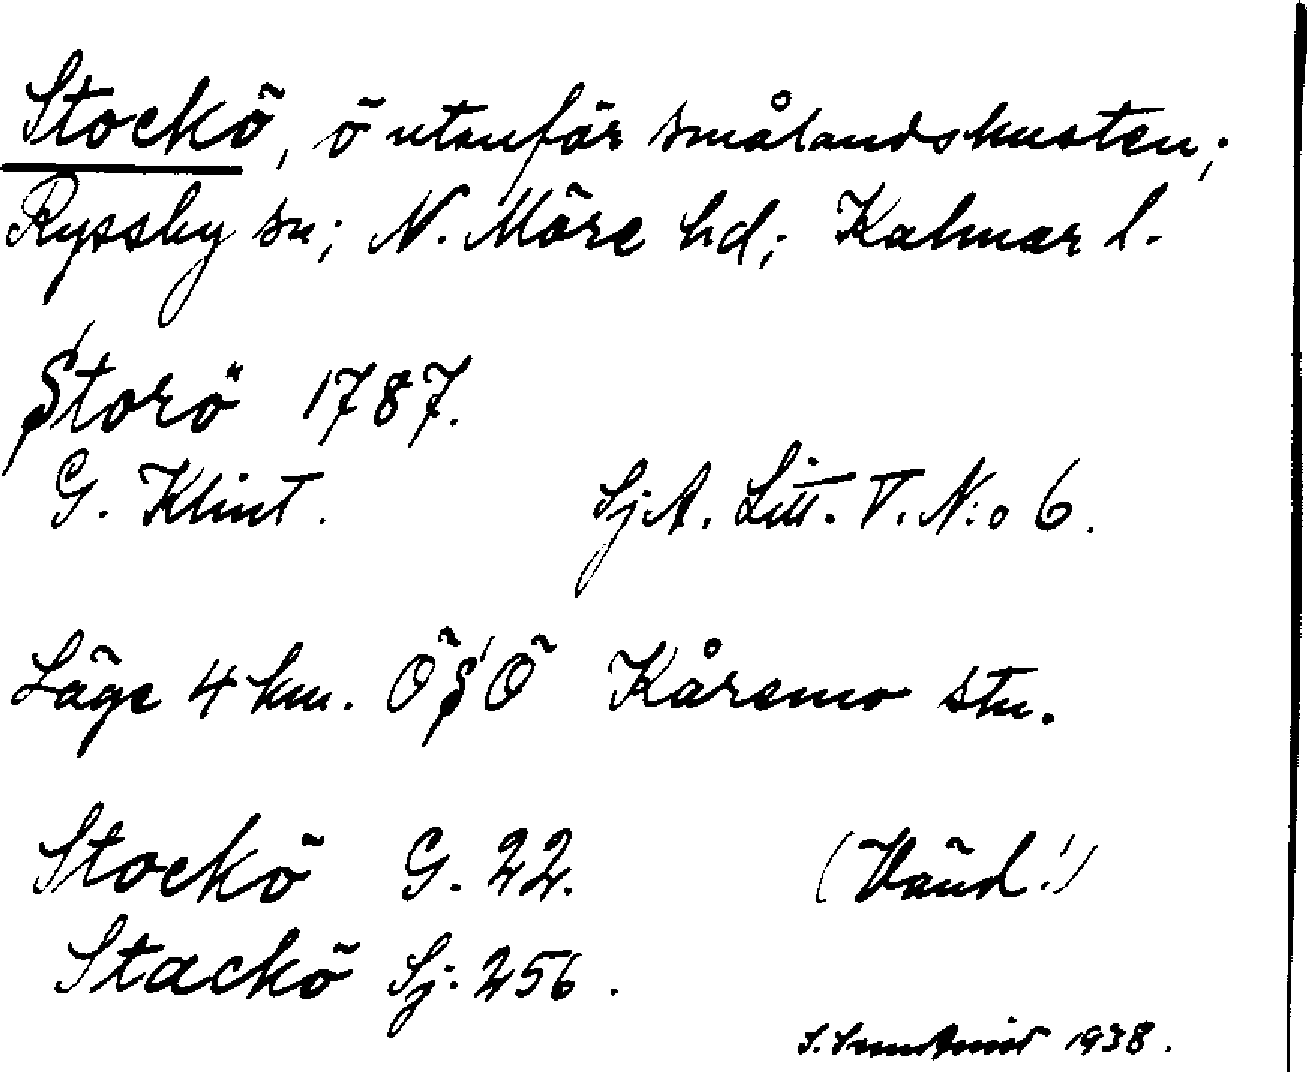 Stockö, ö utanför smålandskusten;
Ryssby sn; N. Möre hd; Kalmar l.
Storö 1787.
G. Klint. Sj.A. Litt. V. N:o 6.
Läge 4 km. ÖSÖ Kåremo stn.
Stockö G. 22. (Vänd!)
Stackö Sj. 256.
S. 1938.